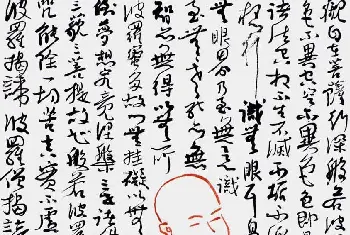 觀自在菩薩行深般若波
色不異空空不異色色即是
諸法空相不生不滅不垢不淨
想行識無眼耳鼻
無眼界乃至無意識
至無老死亦無
智亦無得以無所
波羅蜜多故心無罣礙以無
倒夢想究竟涅槃三世諸
三藐三菩提故知般若波羅
咒能除一切苦真實不虛
波羅揭諦波羅僧揭諦